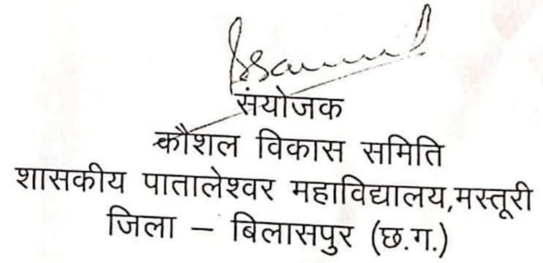 संयोजक
कौशल विकास समिति
शासकीय पातालेश्वर महाविद्यालय,मस्तूरी
जिला – बिलासपुर (छ.ग.)